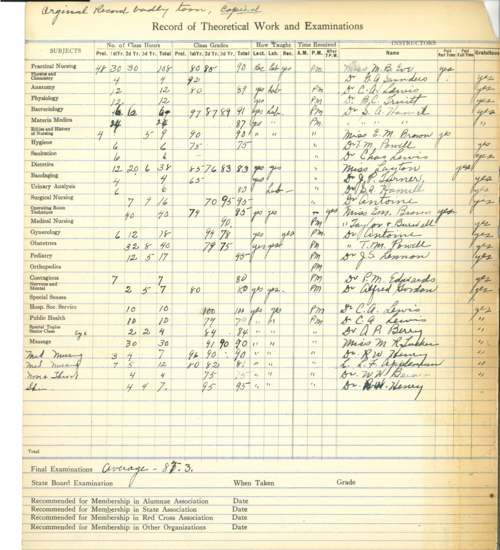 Original Record badly torn, copied
Record of Theoretical Work and Examinations
SUBJECTS No. of Class Hours Class Grades How Taught Time Received INSTRUCTORS
Prel. 1st Yr. 2d Yr. 3d Yr. Total Prel. 1st Yr. 2d Yr. 3d Yr. Total Lect. Lab. Rec. A.M. P.M. After 7 P.M. Name Paid Part Time Paid Full Time Gratuitous
Practical Nursing 48 30 30 108 80 85 90 Rec Lab yes PM Miss M. B. Eve yes
Physics and Chemistry 4 4 92 Dr yes
Anatomy 12 12 80 89 yes Lab " Dr C. A. Lewis yes
Physiology 12 12 yes " Dr B.C. yes
Bacteriology 6 6 97 87 89 91 yes Lab " Dr yes
Materia Medica 24 24 87 yes " " " "
Ethics and History of Nursing 4 5 9 90 90 " " " Miss E. M. Brown yes
Hygiene 6 6 75 75 " Dr T. M. Powell yes
Sanitation 6 6 - " Dr Chas Lewis yes
Dietetics 12 20 6 38 85 76 83 83 yes yes " Miss Layton yes
Bandaging 4 4 65 yes " Dr J.P. Turner, yes
Urinary Analysis 6 80 Lab " Dr yes
Surgical Nursing 7 9 16 70 95 90 " Dr Antoine yes
Operating Room Technique 40 40 74 85 yes yes " yes Miss E.M. Brown yes
Medical Nursing 90 PM " Taylor & Burwell yes
Gynecology 6 12 18 94 78 yes yes PM Dr Antoine yes
Obstetrics 32 8 40 79 75 yes PM " T. M. Powell yes
Pediatry 12 5 17 95 PM Dr J.S. Lennon yes
Orthopedics PM
Contagious 7 7 80 PM Dr P.M. Edwards yes
Nervous and Mental 2 5 7 80 80 yes yes PM Dr Alfred Gordon yes
Special Senses
Hosp. Soc. Service 10 10 100 100 yes yes PM Dr C. A. Lewis yes
Public Health 10 10 74 " PM Dr C A Lewis "
Special Topics Senior Class Eye 2 2 4 84 84 " " Dr A. P. Berry "
Massage 30 30 91 90 90 " " Miss M R Tucker "
3 4 7 96 90 90 " " Dr. R W Henry "
7 5 12 80 82 81 " " "
4 4 75 75 " " Dr. W H "
Skin 4 4 7 95 95 " " Dr. Henry "
Total
Final Examinations Average - 87.3.
State Board Examination When Taken Grade
Recommended for Membership in Alumnae Association Date
Recommended for Membership in State Association Date
Recommended for Membership in Red Cross Association Date
Recommended for Membership in Other Organizations Date